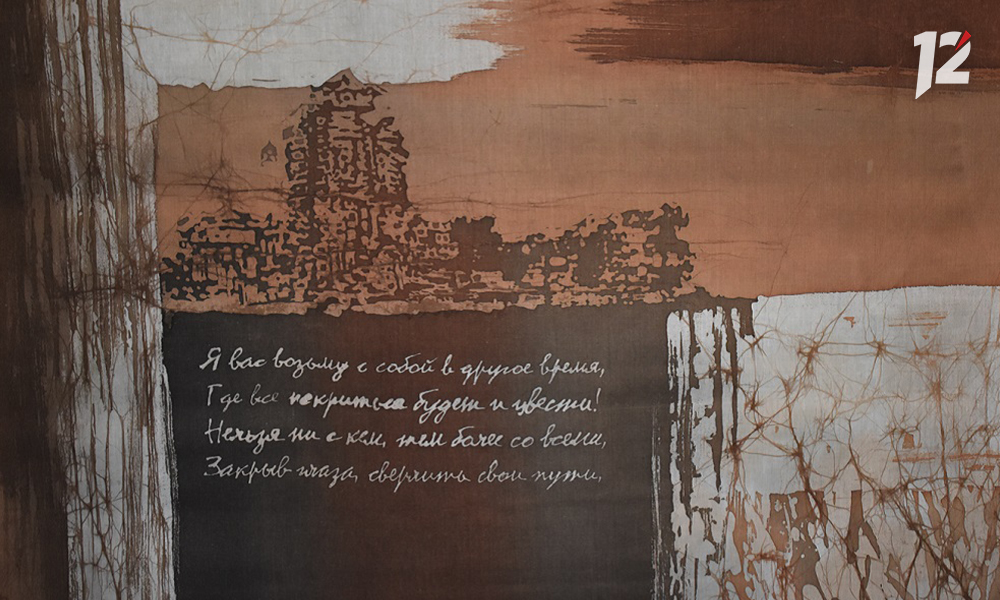 12
Я вас возьму с собой в другое время,
Где все искриться будет и цвести!
Нельзя ни с кем, тем более со всеми,
Закрыв глаза, сверлить свои пути,